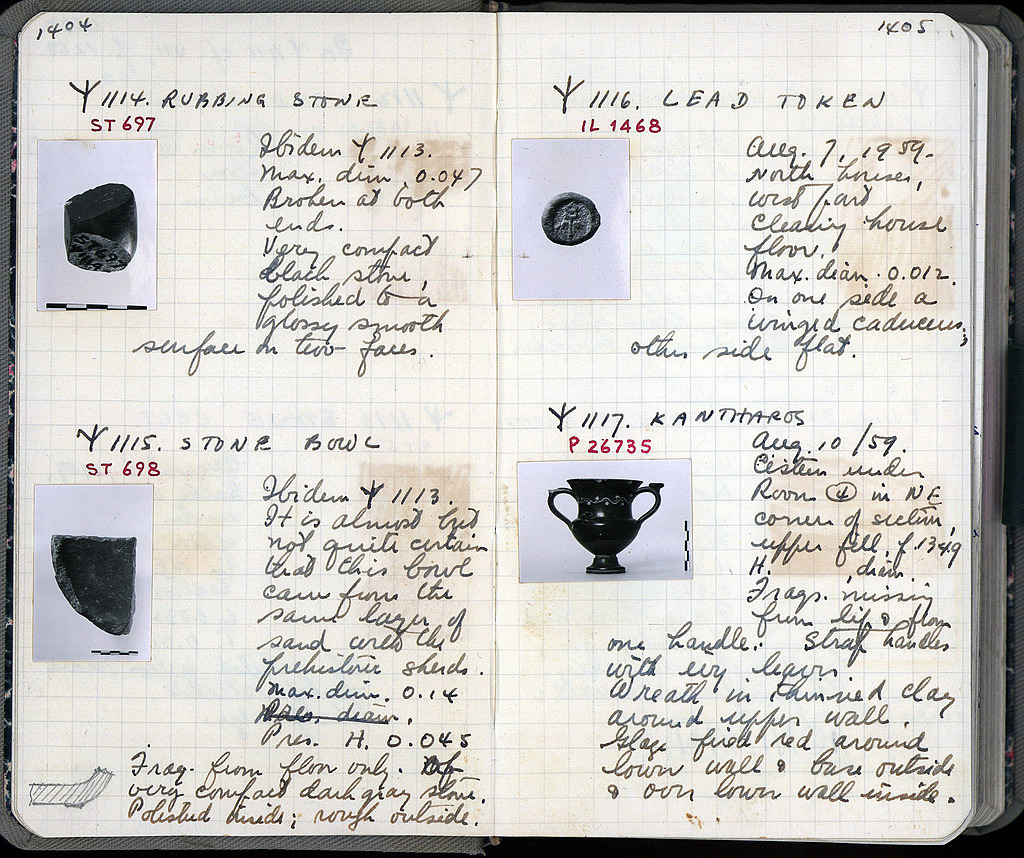 1404
Ψ 1114. RUBBING STONE
ST 697
Ibidem Ψ 1113.
Max. dim. 0.047
Broken at both
ends.
Very compact
black stone,
polished to a
glossy smooth
surface on two faces.
Ψ 1115. STONE BOWL
ST 698
Ibidem Ψ 1113.
It is almost but
not quite certain
that this bowl
came from the
same layer of
sand with the
prehistoric sherds.
Max. dim. 0.14
Max. diam.
Pres. H. 0.045
Frag. from floor only. Of
very compact dark gray stone.
Polished inside; rough outside.
1405
Ψ 1116. LEAD TOKEN
IL 1468
Aug. 7, 1959.
North houses,
west part
cleaning house
floor.
Max. diam. 0.012.
On one side a
winged caduceus;
other side flat.
Ψ 1117. KANTHAROS
P 26735
Aug. 10/59.
Cistern under
Room 4 in NE
corner of section,
upper fill. p. 1349
H. , diam. .
Frags. missing
from lip & from
one handle. Strap handles
with ivy leaves
Wreath in thinned clay
around upper wall.
Glaze fired red around
lower wall & base outside
& over lower wall inside.